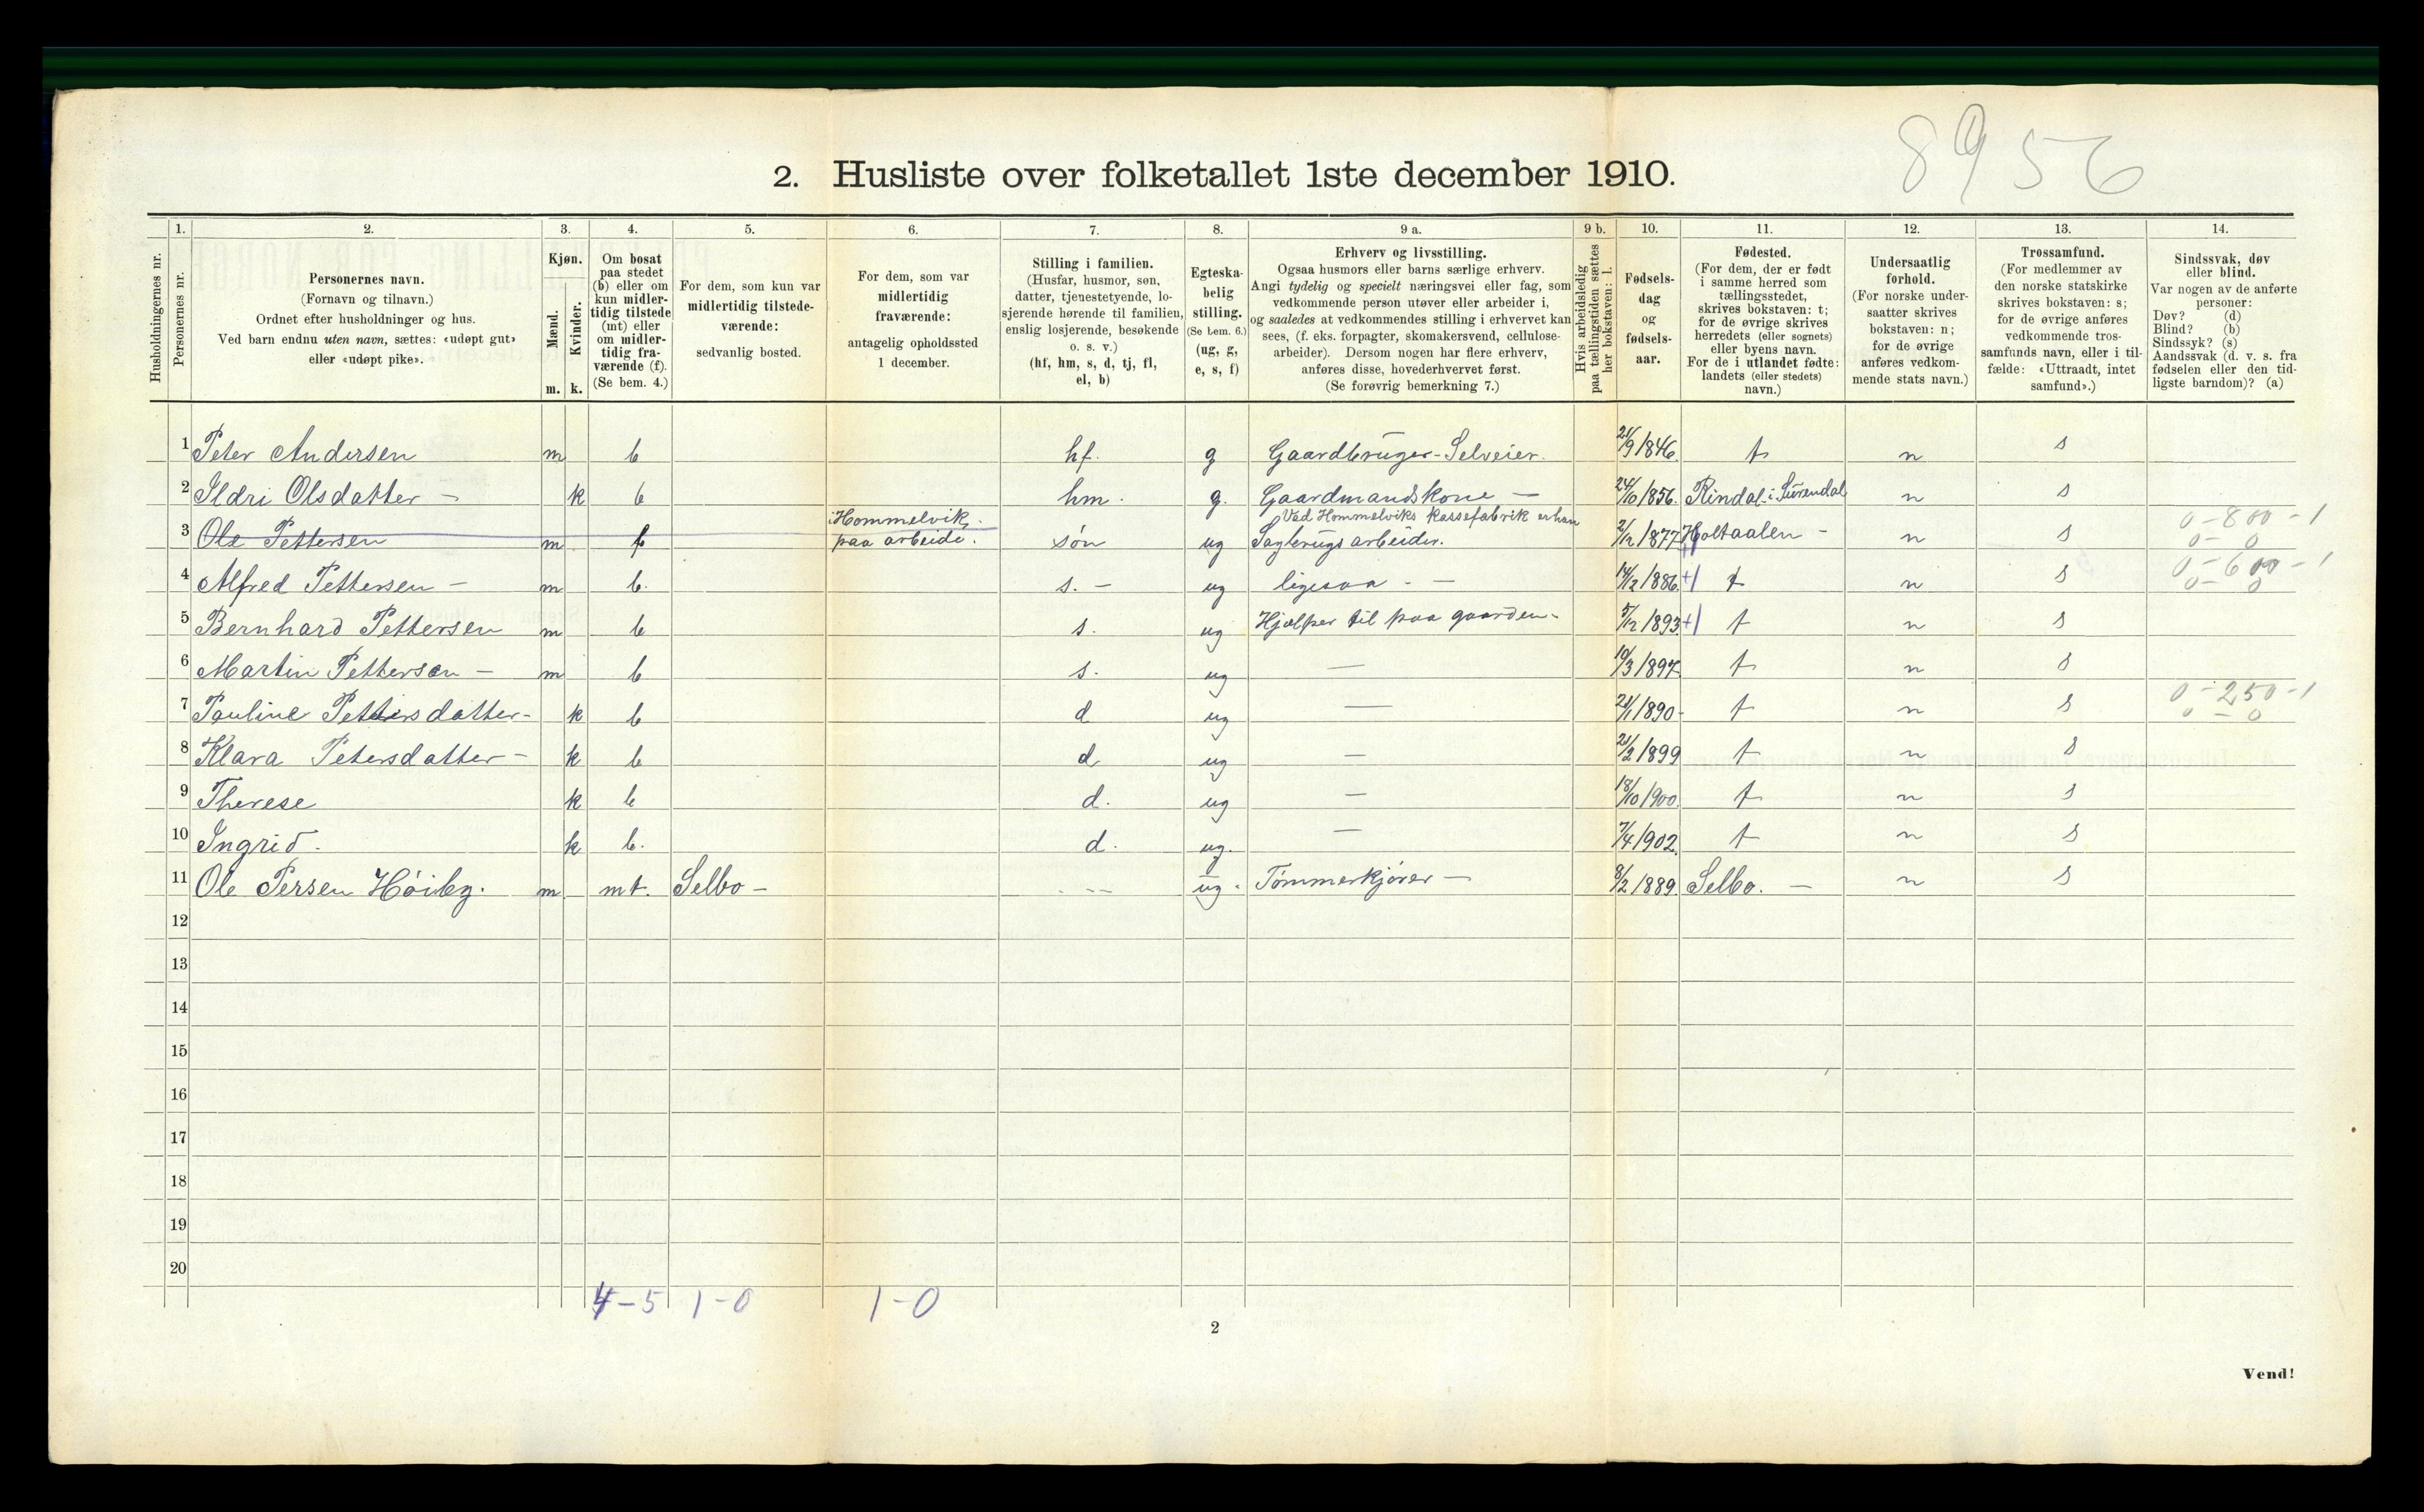 8956
2. Husliste over folketallet 1ste december 1910.
Husholdningernes nr.
1.
Personernes nr.
2.
Personernes navn.
(Fornavn og tilnavn.)
Ordnet efter husholdninger og hus.
Ved barn endnu uten navn, sættes: «udøpt gut»
eller «udøpt pike».
3.
Kjøn.
Mænd.
Kvinder.
m. k.
4.
Om bosat
paa stedet
(b) eller om
kun midler-
tidig tilstede
(mt) eller
om midler-
tidig fra-
værende (f).
(Se bem. 4.)
5.
For dem, som kun var
midlertidig tilstede-
værende:
sedvanlig bosted.
6.
For dem, som var
midlertidig
fraværende:
antagelig opholdssted
1 december.
7.
Stilling i familien.
(Husfar, husmor, søn,
datter, tjenestetyende, lo-
sjerende hørende til familien,
enslig losjerende, besøkende
o. s. v.)
(hf, hm, s, d, tj, fl,
el, b)
8.
Egteska-
belig
stilling.
(Se bem. 6.)
(ug, g,
e, s, f)
9 a.
Erhverv og livsstilling.
Ogsaa husmors eller barns særlige erhverv.
Angi tydelig og specielt næringsvei eller fag, som
vedkommende person utøver eller arbeider i,
og saaledes at vedkommendes stilling i erhvervet kan
sees, (f. eks. forpagter, skomakersvend, cellulose-
arbeider). Dersom nogen har flere erhverv,
anføres disse, hovederhvervet først.
(Se forøvrig bemerkning 7.)
9 b.
Hvis arbeidsledig
paa tællingstiden sættes
her bokstaven: l.
10.
Fødsels-
dag
og
fødsels-
aar.
11.
Fødested.
(For dem, der er født
i samme herred som
tællingsstedet,
skrives bokstaven: t;
for de øvrige skrives
herredets (eller sognets)
eller byens navn.
For de i utlandet fødte:
landets (eller stedets)
navn.)
12.
Undersaatlig
forhold.
(For norske under-
saatter skrives
bokstaven: n;
for de øvrige
anføres vedkom-
mende stats navn.)
13.
Trossamfund.
(For medlemmer av
den norske statskirke
skrives bokstaven: s;
for de øvrige anføres
vedkommende tros-
samfunds navn, eller i til-
fælde: «Uttraadt, intet
samfund».)
14.
Sindssvak, døv
eller blind.
Var nogen av de anførte
personer:
Døv? (d)
Blind? (b)
Sindssyk? (s)
Aandssvak (d. v. s. fra
fødselen eller den tid-
ligste barndom)? (a)
1 Peter Andersen m b hf. g Gaardbruger-Selveier. 21/9 1846. t n s
2 Ildri Olsdatter - k b hm. g. Gaardmandskone - 24/10 1856. Rindal i Surendal n s
i Hommelvik Ved Hommelviks kassefabrik er han 0-800-1
3 Ole Pettersen m f paa arbeide. søn ug Sagbrugsarbeider. 2/12 1877 Holtaalen - n s 0-0
0-600-1
4 Alfred Pettersen - m b. s. - ug ligesaa - - 14/12 1886. +1 t n s 0-0
5 Bernhard Pettersen m b s. ug Hjælper til paa gaarden - 5/12 1893 +1 t n s
6 Martin Pettersen - m b s. ug — 10/3 1897 t n s
0-250-1
7 Pauline Pettersdatter - k b d ug — 21/1 1890 - t n s 0-0
8 Klara Petersdatter - k b d ug — 21/2 1899 t n s
9 Therese k b d. ug — 18/10 1900. t n s
10 Ingrid. k b. d. ug. — 7/4 1902. t n s
11 Ole Persen Høiby. m mt. Selbo - - -- ug. Tømmerkjører - 8/2 1889. Selbo. - n s
12
13
14
15
16
17
18
19
20
4-5 1-0 1-0
2
Vend!